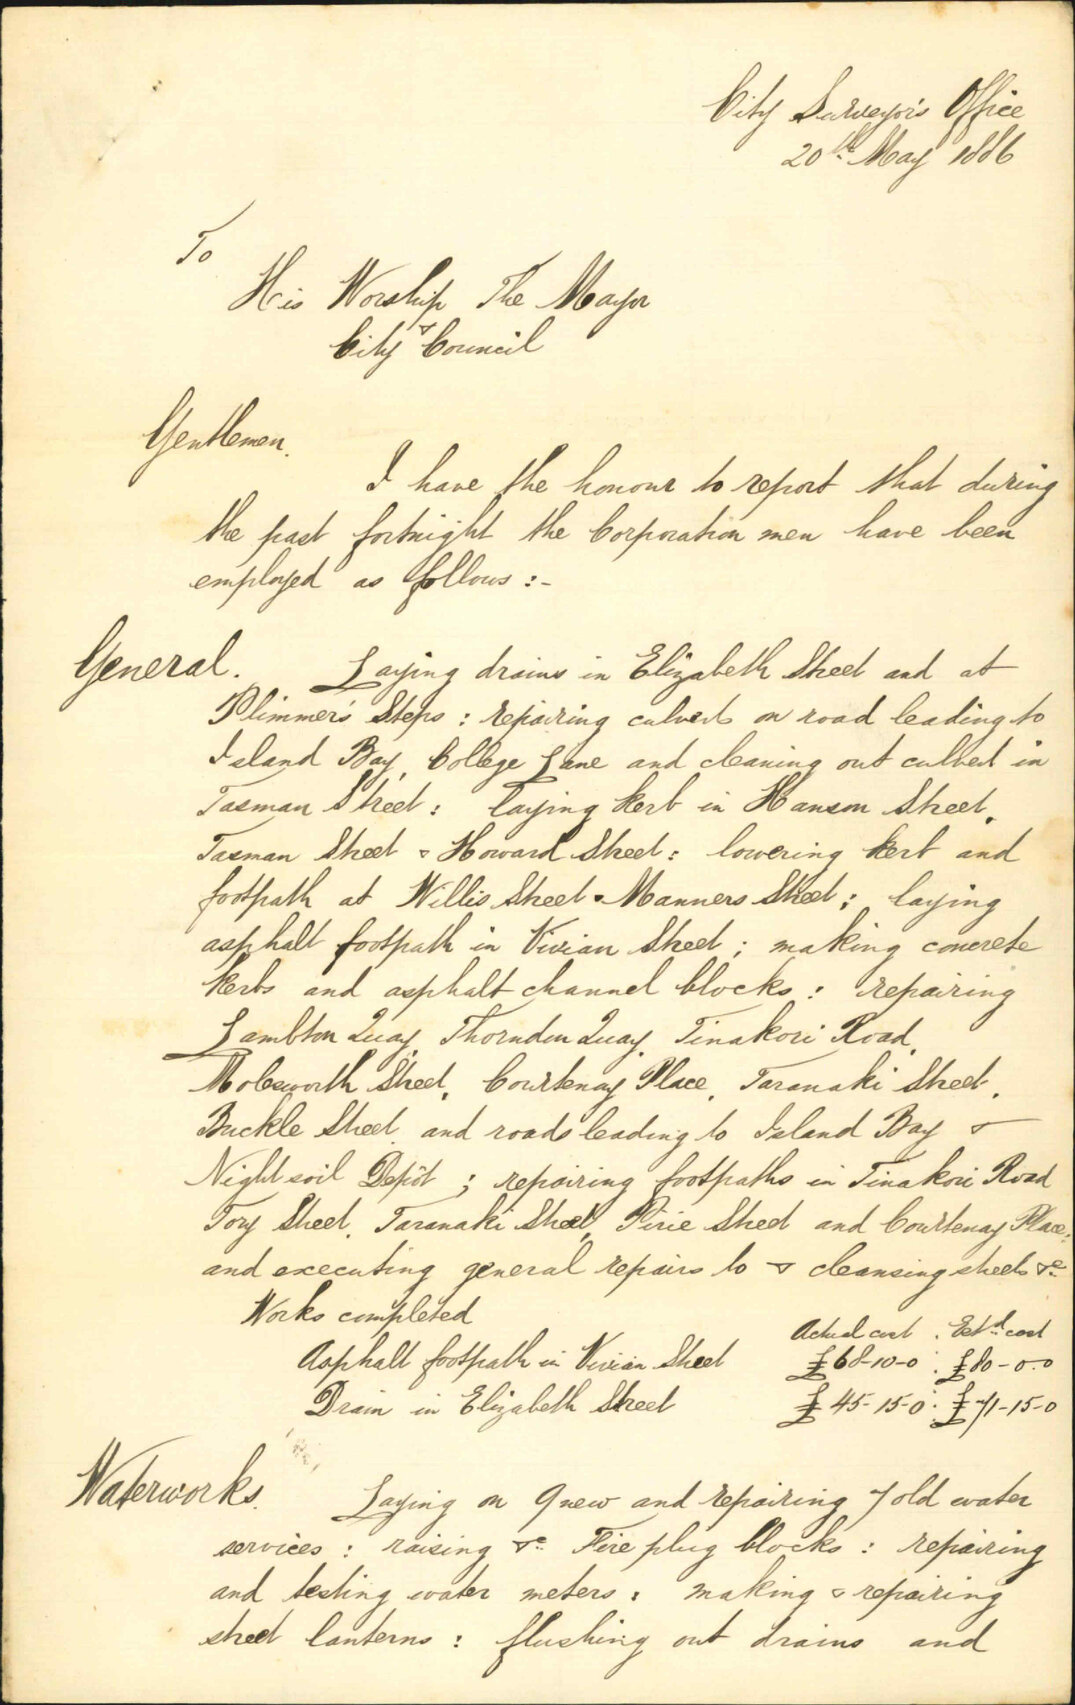 City Surveyor's Office
20th May 1886
To
His Worship The Mayor
& City Council
Gentlemen.
I have the honour to report that during
the past fortnight the Corporation men have been
employed as follows :-
General. Laying drains in Elizabeth Street and at
Plimmer's Steps : repairing culverts on road leading to
Island Bay, College Lane and cleaning out culvert in
Tasman Street : laying kerb in Hanson Street,
Tasman Street & Howard Street : lowering kerb and
footpath at Willis Street & Manners Street ; laying
asphalt footpath in Vivian Street ; making concrete
kerbs and asphalt channel blocks : repairing
Lambton Quay, Thorndon Quay, Tinakori Road,
Molesworth Street, Courtenay Place, Taranaki Street,
Buckle Street and roads leading to Island Bay &
Nightsoil Depôt ; repairing footpaths in Tinakori Road
Tory Street, Taranaki Street, Pirie Street and Courtenay Place:
and executing general repairs to & cleansing streets &c.
Works completed
Actual cost . Estd. cost
Asphalt footpath in Vivian Street £68-10-0 : £80-0-0
Drain in Elizabeth Street £45-15-0 : £71-15-0
Waterworks. Laying on 9 new and repairing 7 old water
services : raising &c. Fire plug blocks : repairing
and testing water meters : making & repairing
street lanterns : flushing out drains and